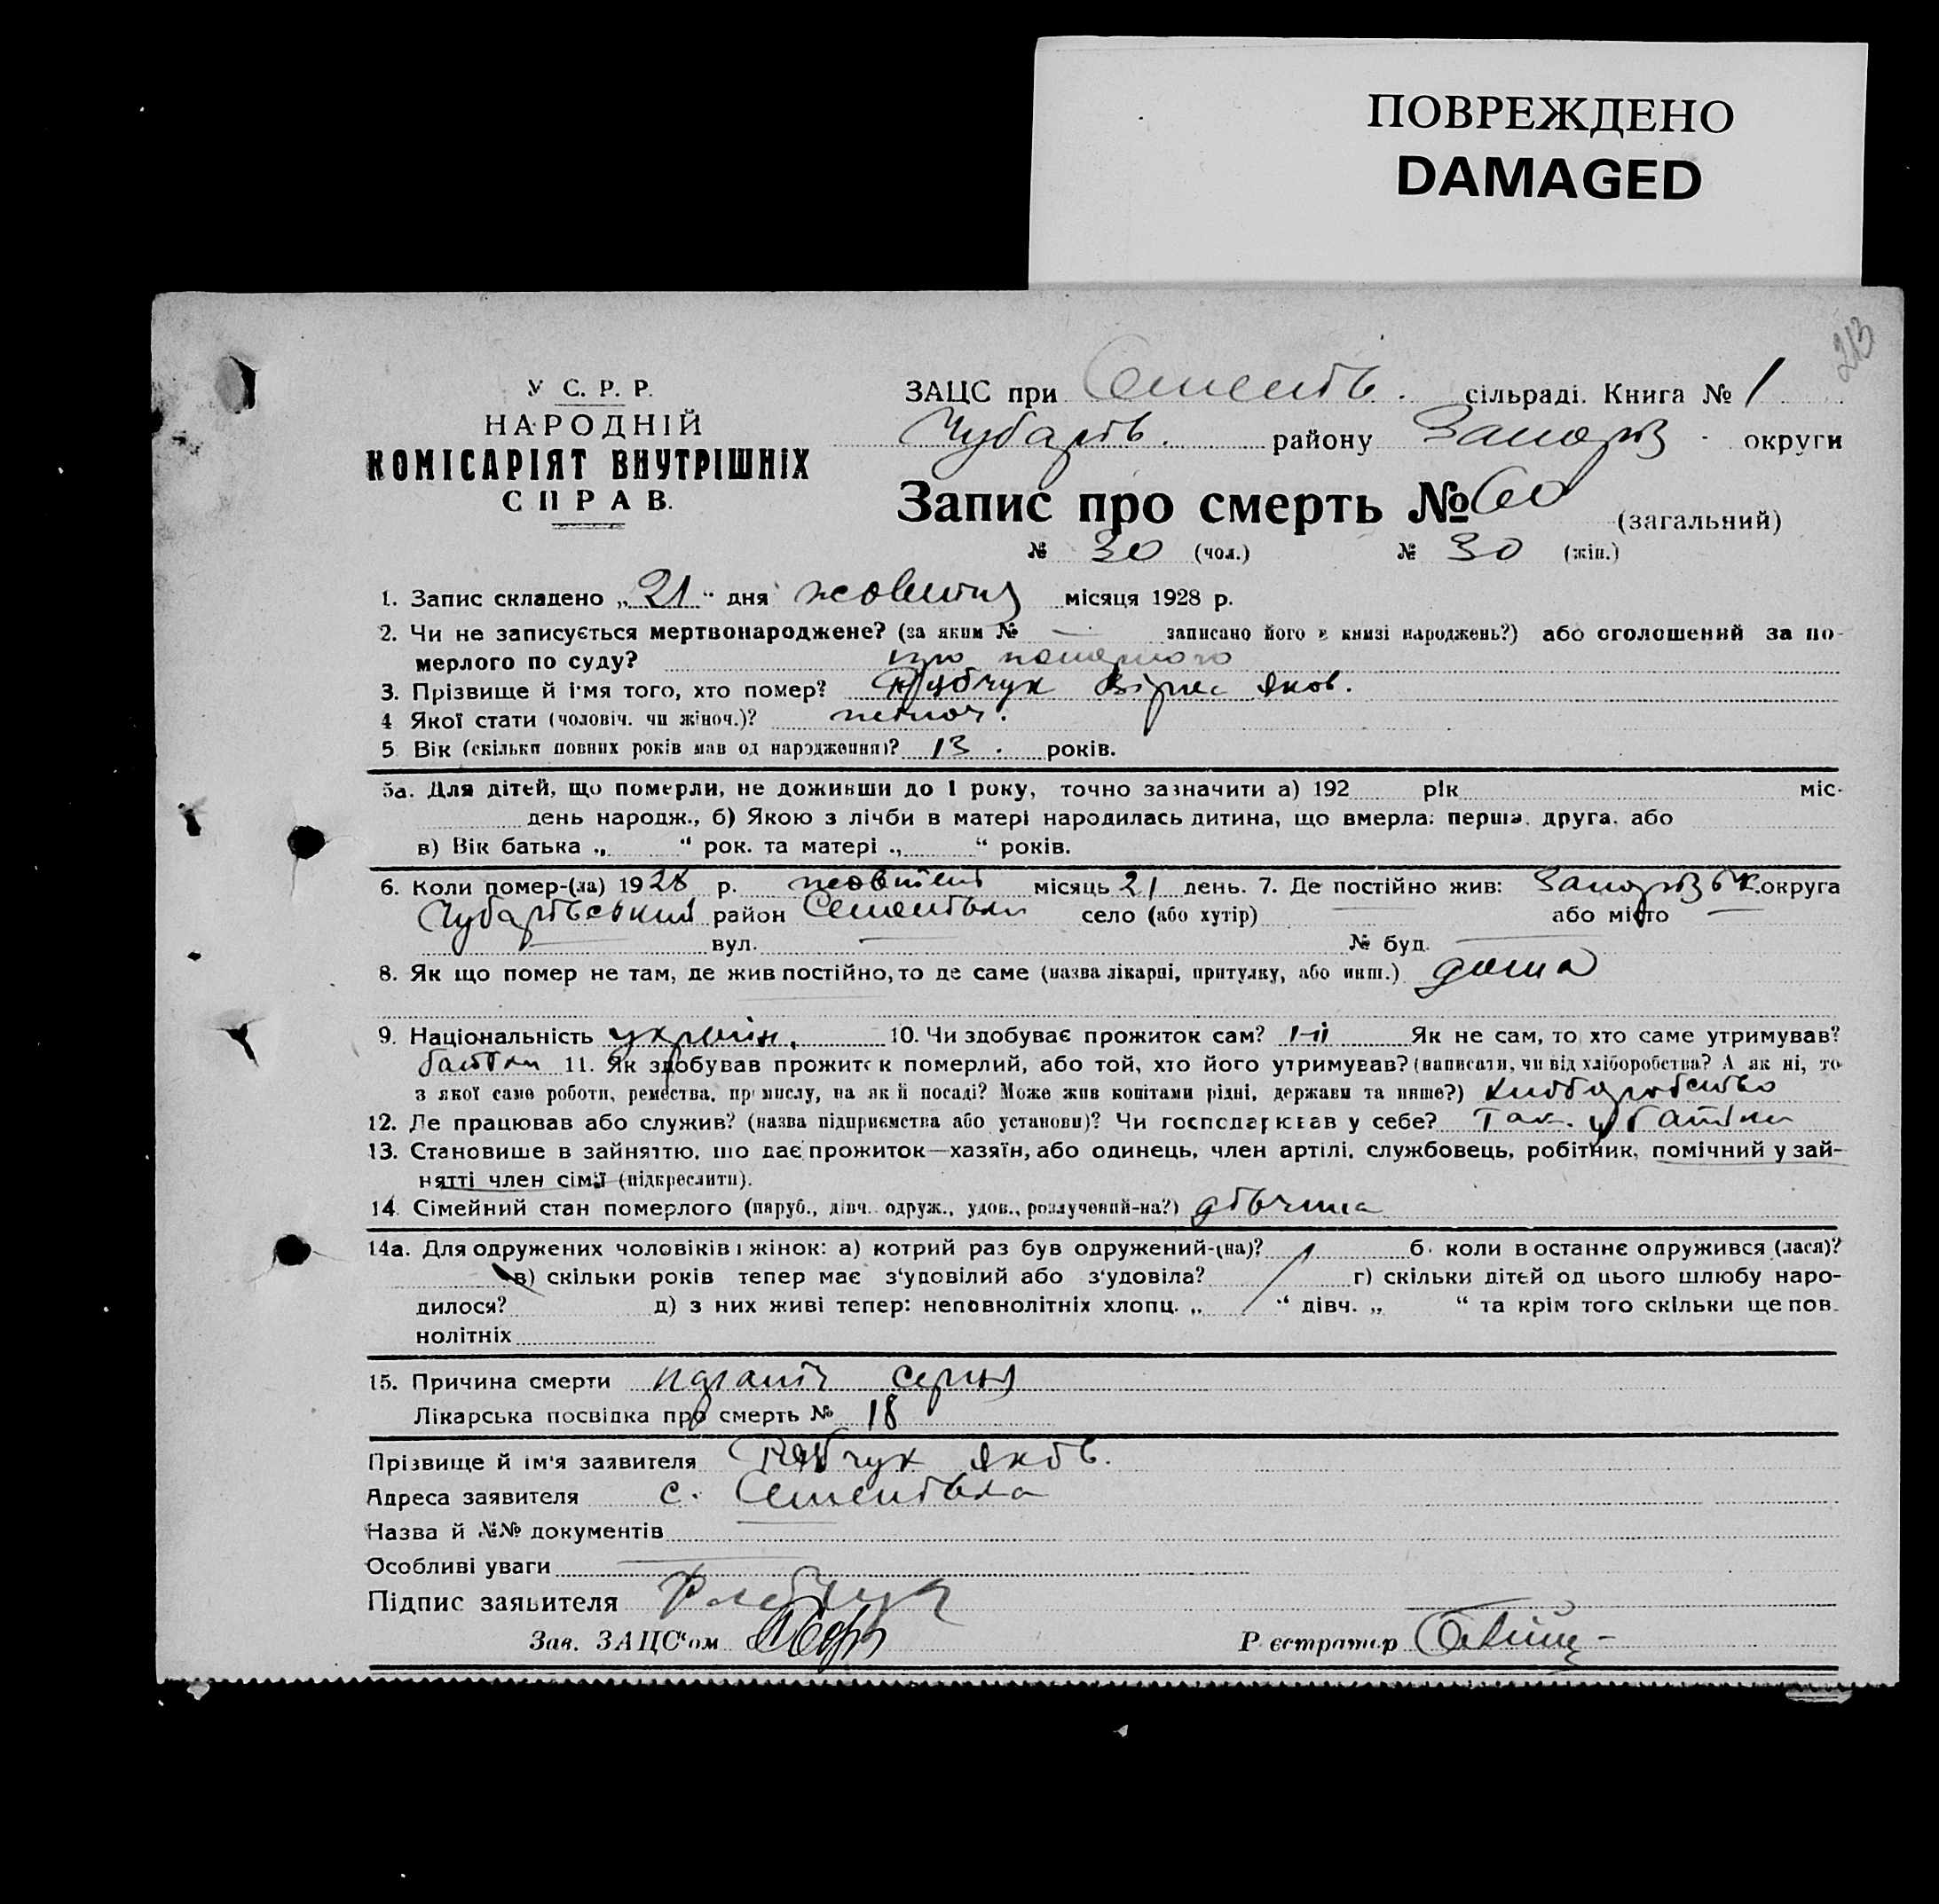 ПОВРЕЖДЕНО
DAMAGED
213
У С. Р. Р.
НАРОДНІЙ
КОМІСАРІЯТ ВНУТРІШНІХ
СПРАВ.
ЗАЦС при Семенів. сільраді. Книга № 1
Чубарів. району Запоріз. округи
Запис про смерть № 60 (загальний)
№ 30 (чол.) № 30 (жін.)
1. Запис складено „21“ дня жовтня місяця 1928 р.
2. Чи не записується мертвонароджене? (за яким № — записано його в книзі народжень?) або оголошений за по-
мерлого по суду? про померлого
3. Прізвище й ім'я того, хто помер? Рябчук Яков.
4 Якої стати (чоловіч. чи жіноч.)? жіноч.
5 Вік (скільки повних років мав од народження)? 13. років.
5а. Для дітей, що померли, не доживши до 1 року, точно зазначити а) 192 рік міс.
день народж., б) Якою з лічби в матері народилась дитина, що вмерла: перша, друга, або
в) Вік батька „ “ рок. та матері „ “ років.
6. Коли помер-(ла) 1928 р. жовтень місяць 21 день. 7. Де постійно жив: Запорізьк. округа
Чубарівський район Семенівка село (або хутір) — або місто —
— вул. — № буд. —
8. Як що помер не там, де жив постійно, то де саме (назва лікарні, притулку, або инш.) дома
9. Національність україн. 10. Чи здобуває прожиток сам? Ні Як не сам, то хто саме утримував?
батьки 11. Як здобував прожиток померлий, або той, хто його утримував? (написати, чи від хліборобства? А як ні, то
з якої саме роботи, ремества, промислу, на якій посаді? Може жив коштами рідні, держави та инше?) хліборобство
12. Де працював або служив? (назва підприємства або установи)? Чи господарював у себе? Так. у батьки
13. Становище в зайняттю, що дає прожиток—хазяїн, або одинець, член артілі, службовець, робітник, помічний у зай-
нятті член сім'ї (підкреслити).
14. Сімейний стан померлого (паруб., дівч. одруж., удов., розлучений-на?) дівчина
14а. Для одружених чоловіків і жінок: а) котрий раз був одружений-(на)? б. коли в останнє одружився (лася)?
в) скільки років тепер має з'удовілий або з'удовіла? г) скільки дітей од цього шлюбу наро-
дилося? д) з них живі тепер: неповнолітніх хлопц. „ “ дівч. „ “ та крім того скільки ще пов-
нолітніх
15. Причина смерти серця
Лікарська посвідка про смерть № 18
Прізвище й ім'я заявителя Рябчук Яків.
Адреса заявителя с. Семенівка
Назва й №№ документів —
Особливі уваги —
Підпис заявителя Рябчук
Зав. ЗАЦС'ом
Реєстратор